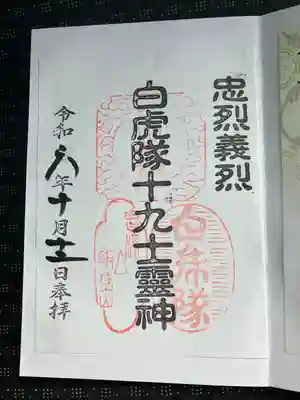 忠烈義烈
白虎隊十九士靈神
白虎隊
令和六年十月十二日奉拝